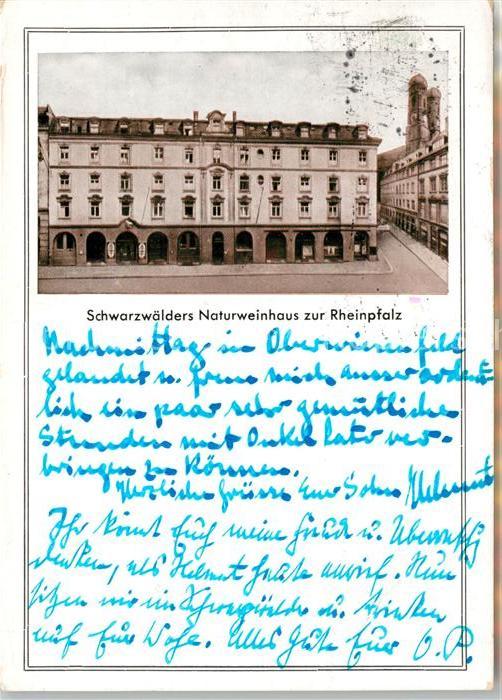 Schwarzwälders Naturweinhaus zur Rheinpfalz
Nachmittag in Oberwiesenfeld
gelandet u. freue mich ausserordent-
lich ein paar sehr gemütliche
Stunden mit Onkel ver-
bringen zu können.
Herzliche Grüsse Euer Sohn Helmut
Ihr könnt Euch meine Freude u. Überraschg
denken, als Helmut heute anrief. Nun
sitzen wir im Schwarzwälder u. trinken
auf Euer Wohl. Alles Gute Euer O. P.